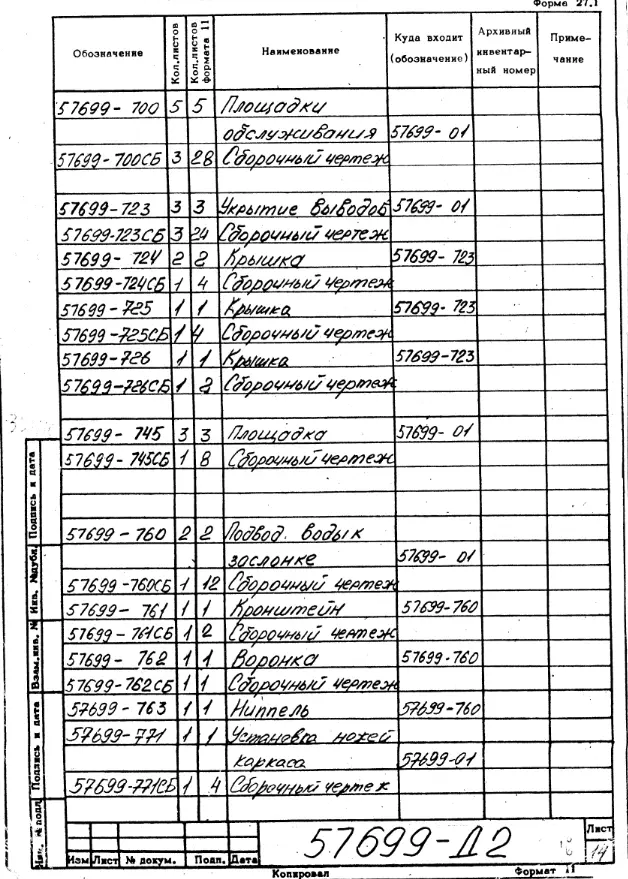 Форма 27.1
Обозначение Кол.листов Кол.листов формата 11 Наименование Куда входит (обозначение) Архивный инвентарный номер Примечание
57699-700 5 5 Площадки
обслуживания 57699-01
57699-700СБ 3 28 Сборочный чертеж
57699-723 3 3 Укрытие выводов 57699-01
57699-723СБ 3 24 Сборочный чертеж
57699-724 2 2 Крышка 57699-723
57699-724СБ 1 4 Сборочный чертеж
57699-725 1 1 Крышка 57699-723
57699-725СБ 1 4 Сборочный чертеж
57699-726 1 1 Крышка 57699-723
57699-726СБ 1 2 Сборочный чертеж
57699-745 3 3 Площадка 57699-01
57699-745СБ 1 8 Сборочный чертеж
57699-760 2 2 Подвод воды к
заслонке 57699-01
57699-760СБ 1 12 Сборочный чертеж
57699-761 1 1 Кронштейн 57699-760
57699-761СБ 1 2 Сборочный чертеж
57699-762 1 1 Воронка 57699-760
57699-762СБ 1 1 Сборочный чертеж
57699-763 1 1 Ниппель 57699-760
57699-771 1 1 Установка ножей
каркаса 57699-01
57699-771СБ 1 4 Сборочный чертеж
Подпись и дата
Инв. №дубл.
Взам.инв. №
Подпись и дата
Инв. № подл.
57699-Д2
Лист
14
Изм Лист № докум. Подп. Дата
Копировал Формат 11